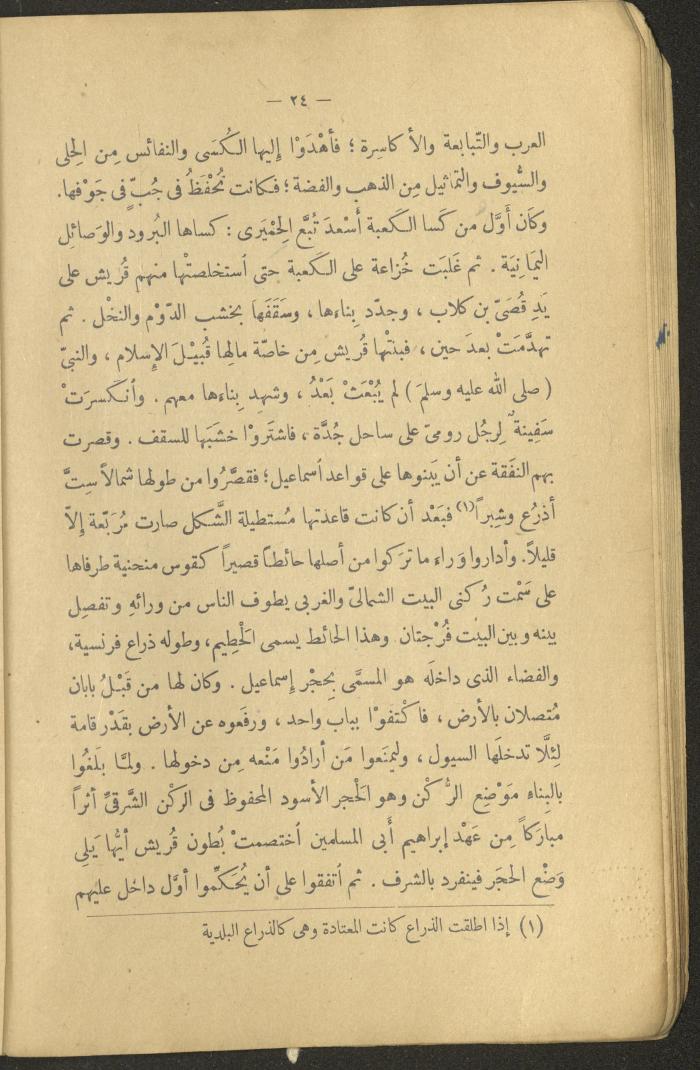 — ٢٤ —
العرب والتّبابعة والأكاسِرة ؛ فأهْدَوْا إليها الكُسَى والنفائس مِن الحِلى
والسُّيوف والتماثيل مِن الذهب والفضة ؛ فكانت تُحْفَظُ فى جُبّ فى جَوْفها.
وكان أوَّل من كَسا الكَعبة أَسْعدَ تُبَّع الحِمْيَرى : كساها البُرود والوَصائل
اليمَانِيَة . ثم غَلبَت خُزاعة على الكَعبة حتى ٱستخلصتْها منهم قُريش على
يَدِ قُصَىّ بن كلاب ، وجدّد بِناءها ، وسَقَفَها بخشب الدّوْم والنخْل . ثم
تهدَّمَتْ بعدَ حين ، فبنتْها قُريش مِن خاصّة مالها قُبيْل الإسلام ، والنبىّ
( صلى الله عليه وسلم ) لم يُبْعَثْ بَعْدُ ، وشهِد بِناءها معهم . وٱنكسرَتْ
سَفِينة لِرجُل رومىّ على ساحل جُدَّة ، فاشتَروْا خشَبَها للسقف . وقصرت
بهم النفَقة عن أن يَبنوها على قواعد اسماعيل ؛ فقصَّرُوا من طولها شمالاً سِتَّ
أذرُع وشِبراً(١) فبَعْد أن كانت قاعدتها مُستطيلة الشَّكل صارت مُربّعة إلاّ
قليلاً. وأداروا وَراء ما ترَكوا من أصلها حائطاً قصيراً كقوس منحنية طرفاها
على سَمْت رُكنى البيت الشمالىّ والغربى يطوف الناس من ورائهِ وتفصِل
بينه وبين البيْت فُرْجتان وهذا الحائط يسمى الحَطِيم، وطوله ذراع فرنسية،
والفضاء الذى داخلَه هو المسمَّى بِحجْر إِسماعيل . وكان لها من قَبْلُ بابان
مُتصلان بالأرض ، فاكتفوْا بباب واحد ، ورفَعوه عن الأرض بقَدْر قامة
لِئلَّا تدخلَها السيول ، وليمنَعوا مَن أرادُوا مَنْعه مِن دخولها . ولمّا بلَغُوا
بالبِناءِ مَوْضِع الرُّكْن وهو الحَجر الأسود المحفوظ فى الركْن الشّرقىّ أثراً
مبارَكاً مِن عَهْد إبراهيم أبى المسلمين ٱختصمتْ بُطون قُريش أيُّها يَلِى
وَضْع الحجَر فينفرد بالشرف . ثم ٱتفقوا على أن يُحَكِّموا أوَّل داخل عليهم
(١) إذا اطلقت الذراع كانت المعتادة وهى كالذراع البلدية